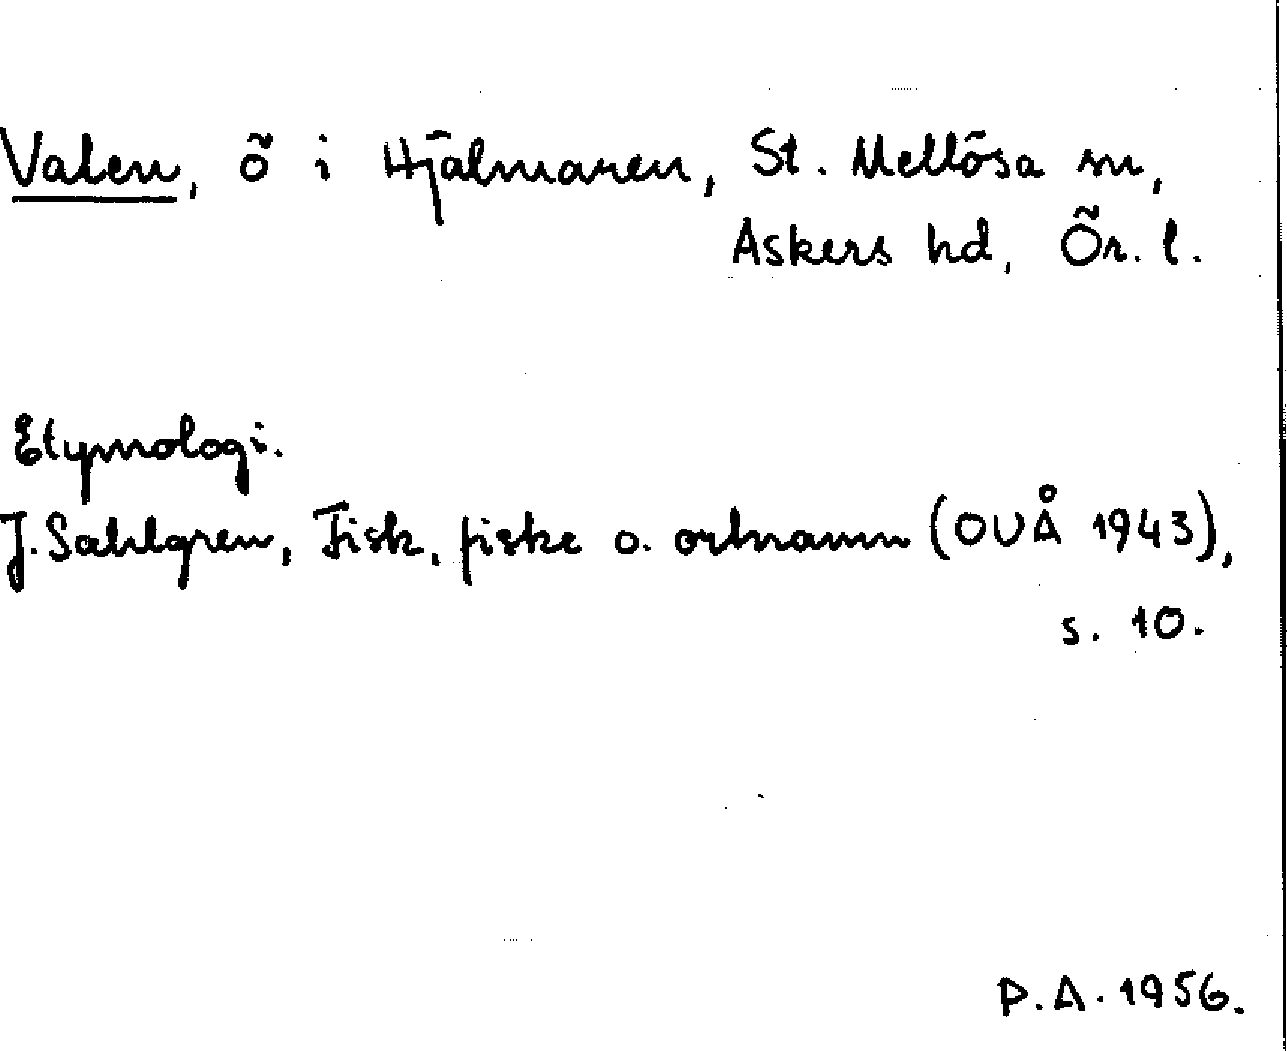 Valen, ö i Hjälmaren, St. Mellösa sn,
Askers hd, Ör. l.
Etymologi.
J. Sahlgren, Fisk, fiske o. ortnamn (OUÅ 1943),
s. 10.
P.A. 1956.